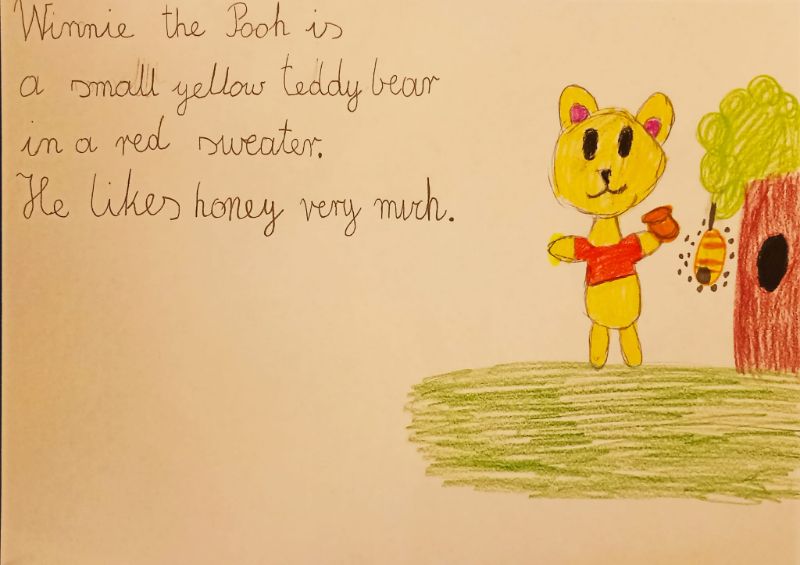 Winnie the Pooh is
a small yellow teddy bear
in a red sweater.
He likes honey very much.